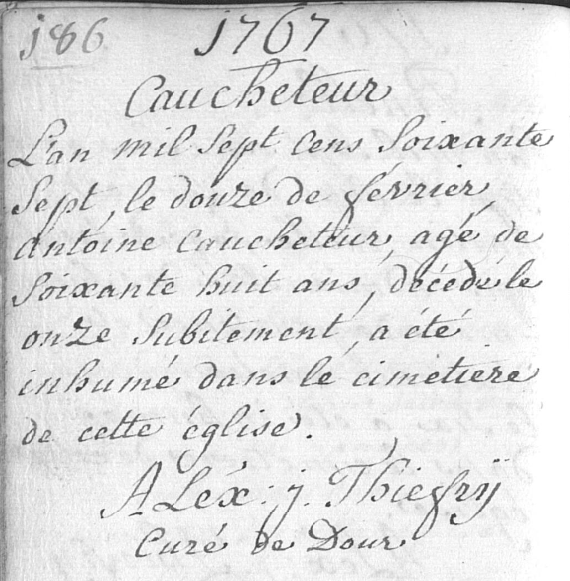 186 1767
Caucheteur
L'an mil Sept cens Soixante
Sept, le douze de février,
Antoine Caucheteur, agé de
Soixante huit ans, décedé le
onze Subitement, a été
inhumé dans le cimetiere
de cette église.
ALéx: j. Thiefrÿ
Curé de Dour